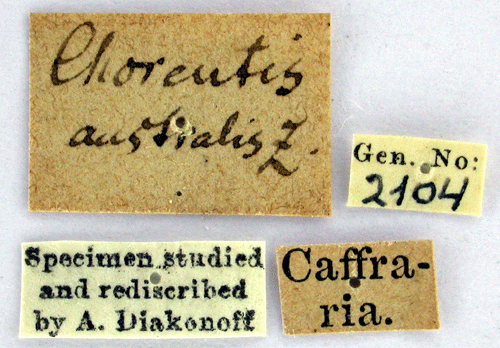 Choreutis
australis Z.
Gen. No:
2104
Specimen studied
and rediscribed
by A. Diakonoff
Caffra-
ria.